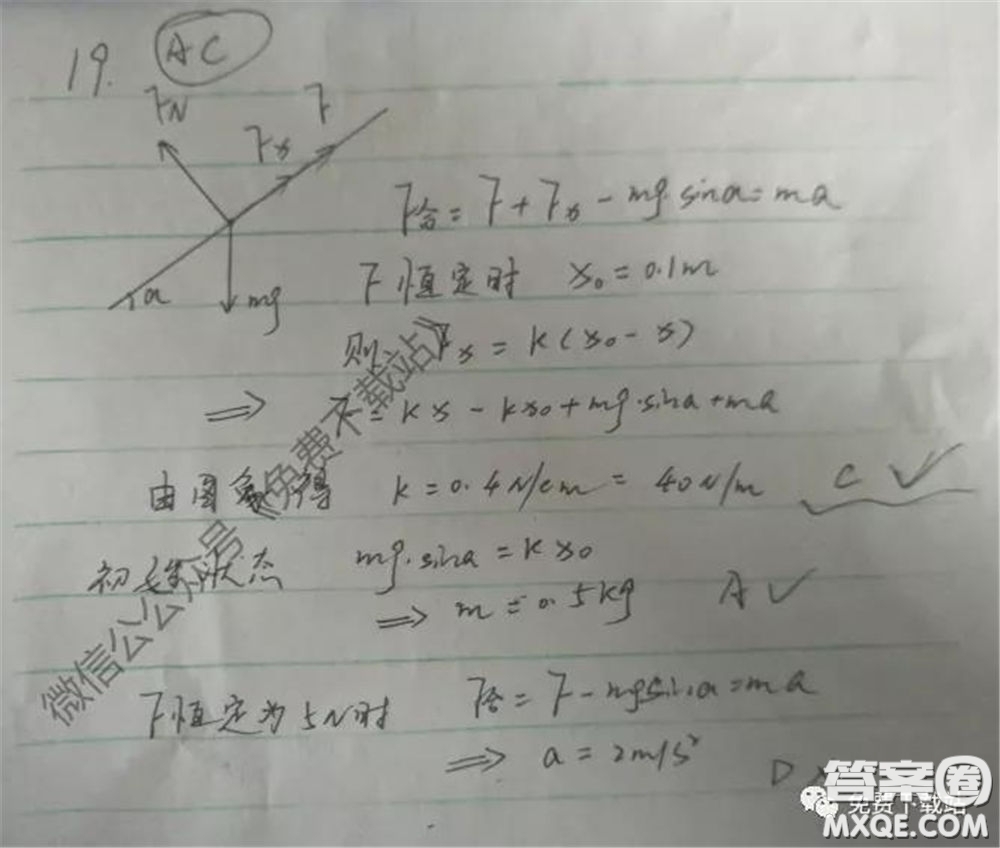 19. AC
FN
Fx
F
α
mg
F合 = F + Fx - mg·sinα = ma
F恒定时 x₀ = 0.1m
则 Fx = k(x₀ - x)
⇒ F = kx - kx₀ + mg·sinα + ma
由图象得 k = 0.4N/cm = 40N/m C ✓
初始状态 mg·sinα = kx₀
⇒ m = 0.5kg A ✓
F恒定为5N时 F合 = F - mgsinα = ma
⇒ a = 2m/s²
D ×
微信公众号《免费下载站》
免费下载站
答案圈
MXQE.COM